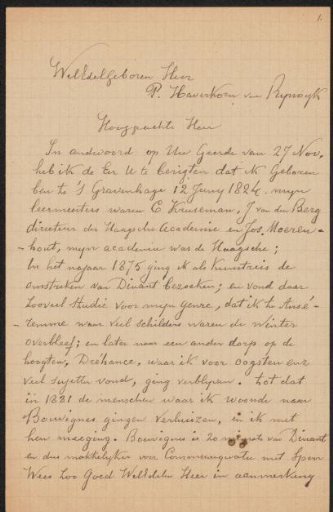 1.
WelEdelgeboren Heer
P. Haverkorn van Rijsewijk
Hooggeachte Heer
In andwoord op Uw Geerde van 27 Nov,
heb ik de Eer U te berigten dat ik Geboren
ben te 's Gravenhage 12 Juny 1824. mijn
leermeesters waren C. Kruseman, J. van den Berg
directeur der Haagsche Academie en Jos. Moeren-
- hout, mijn academie was de Haagsche;
In het najaar 1875 ging ik als Kunstreis de
omstreken van Dinant bezoeken; en vond daar
zooveel Studie voor mijn genre, dat ik te Ansé-
- remme waar veel schilders waren de Winter
overbleef; en later naar een ander dorp op de
hoogten, Dréhance, waar ik voor oogsten enz
veel sujetten vond, ging verblijven. tot dat
in 1881 de menschen waar ik woonde naar
Bouvignes gingen verhuizen, en ik met
hen meeging. Bouvignes is 20 minuten van Dinant
en dus makkelijker voor Communicatie met Spoor
Wees zoo Goed WelEdele Heer in aanmerking